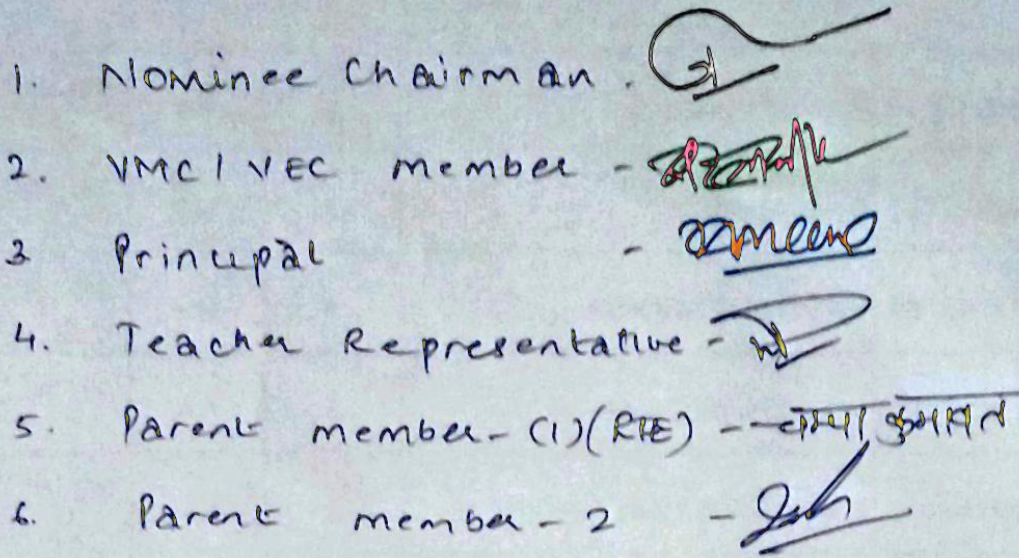 1. Nominee Chairman.
2. VMC / VEC member -
3 Principal -
4. Teacher Representative -
5. Parent member - (1) (RTE) -
6. Parent member - 2 -